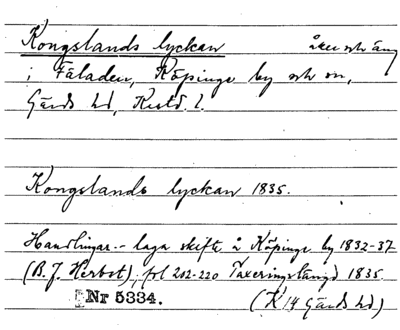 Kongslands lyckan åker och äng
i Fäladen, Köpinge by och sn,
Gärds hd, Kristd. l.
Kongslands lyckan 1835.
Handlingar.- laga skifte å Köpinge by 1832-37
(B. J. Herbst), fol 202-220 Taxeringslängd 1835.
Nr 5334. (K 14 Gärds hd)